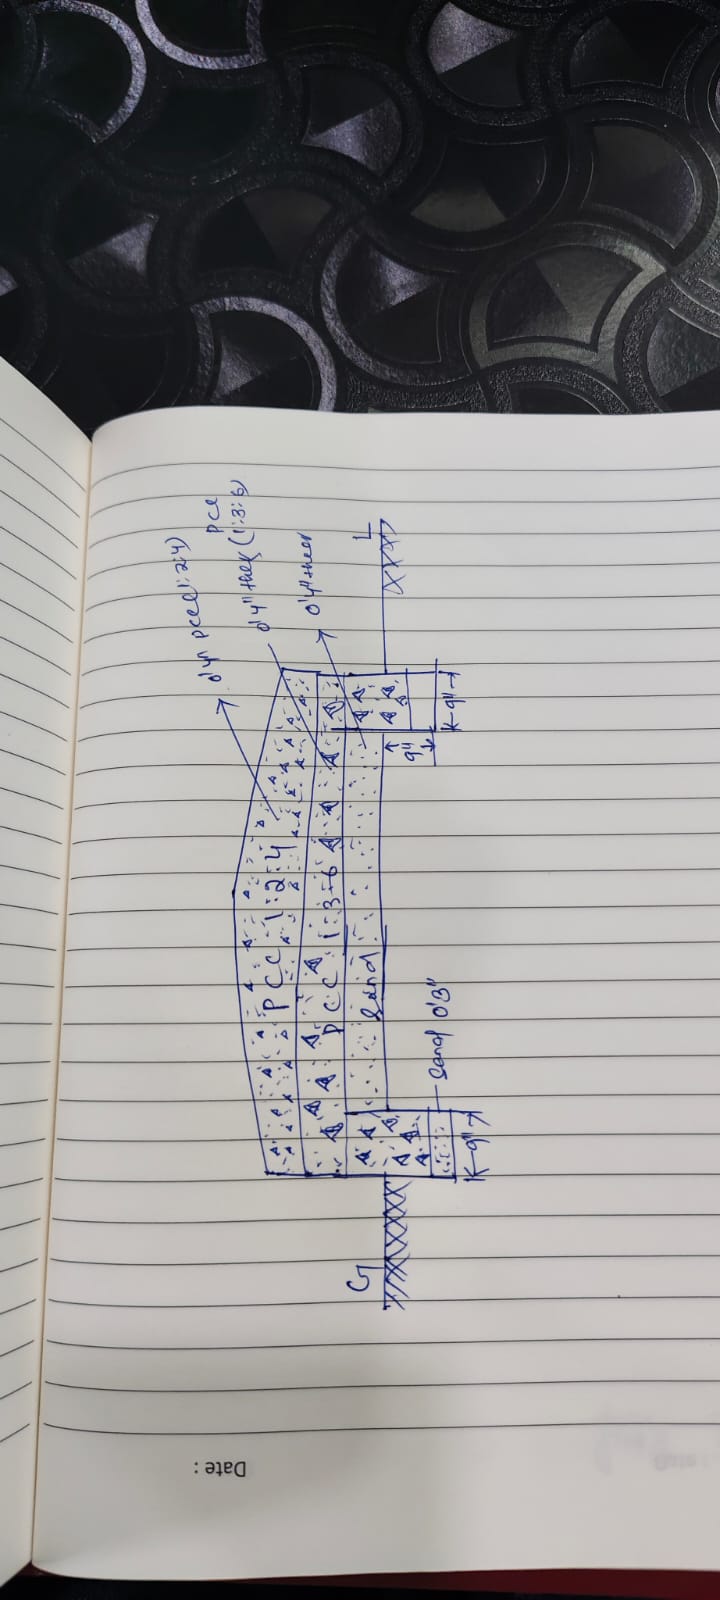 0'4" PCC(1:2:4)
PCC
0'4" thek (1:3:6)
0'4" thek
PCC 1:2:4
PCC 1:3-6
Sand
G
L
9"
9"
9"
Sand 0'3"
Date :